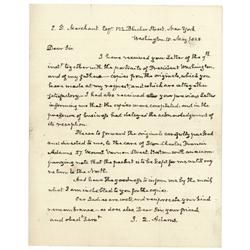 E. D. Marchant Esqr 172 Bleecker Street, New York
Washington 15. May 1828
Dear Sir
I have received your Letter of the 9th
inst. together with the portraits of President Washington,
and of my father — copies from the originals, which you
have made at my request, and which are altogether
satisfactory. I had also received your previous letter
informing me that the copies were completed, and in the
pressure of business had delayed the acknowledgment of
its reception.
Please to forward the originals carefully packed
and directed to me, to the care of Charles Francis
Adams 57. Mount Vernon Street Boston with an accom-
panying note that the packet is to be kept for me until my
return to the North.
And have the goodness to inform me by the mail
what I am indebted to you for the copies.
Our Ladies are well, and reciprocate your kind
remembrance — as does also, Dear Sir, your friend
and obedt Servt
J. Q. Adams.